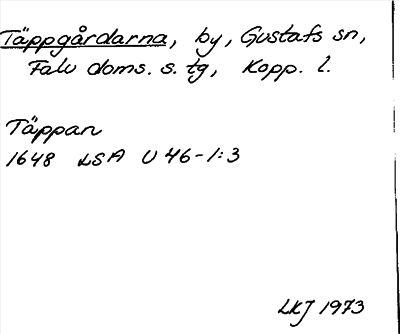 Täppgårdarna, by, Gustafs sn,
Falu doms. s. tg, Kopp. l.
Täppan
1648 LSA U 46-1:3
LKJ 1973